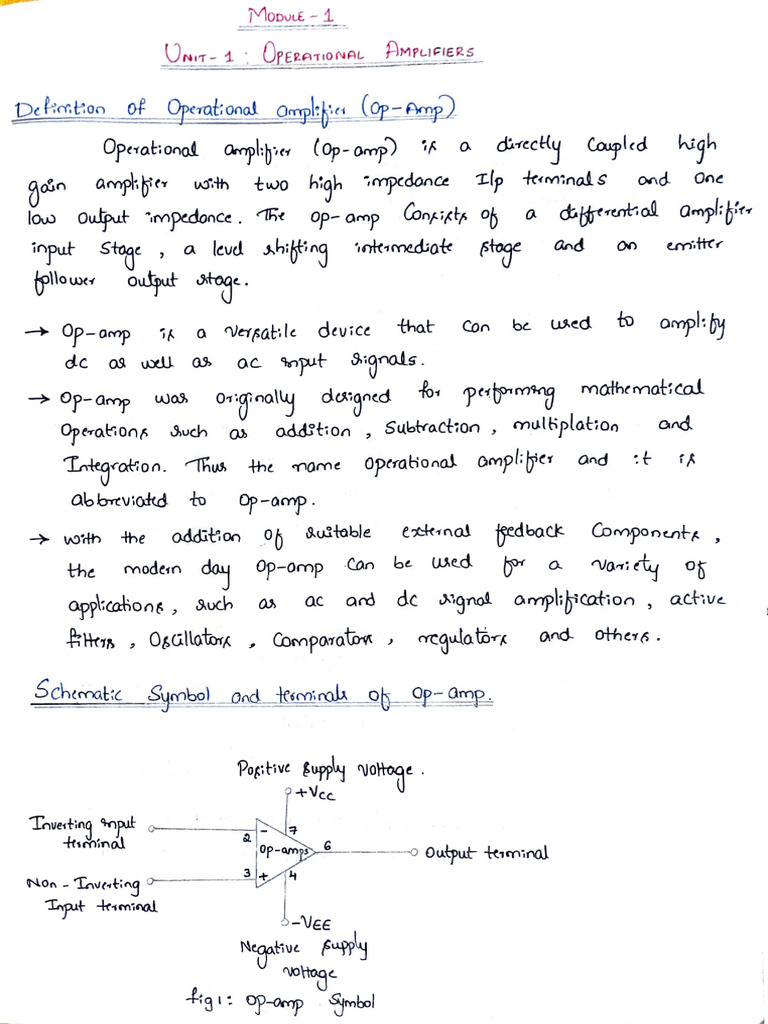 MODULE-1
UNIT-1 : OPERATIONAL AMPLIFIERS
Definition of Operational amplifier (Op-Amp)
Operational amplifier (op-amp) is a directly coupled high
gain amplifier with two high impedance I/p terminals and one
low output impedance. The op-amp Consists of a differential amplifier
input stage, a level shifting intermediate stage and an emitter
follower output stage.
→ Op-amp is a versatile device that can be used to amplify
dc as well as ac input signals.
→ Op-amp was originally designed for performing mathematical
Operations such as addition, Subtraction, multiplation and
Integration. Thus the name operational amplifier and it is
abbreviated to op-amp.
→ with the addition of suitable external feedback Components,
the modern day op-amp can be used for a variety of
applications, such as ac and dc signal amplification, active
filters, Oscillators, Comparators, regulators and others.
Schematic Symbol and terminals of op-amp.
Positive supply voltage.
+VCC
Inverting input
terminal
2
-
7
op-amps
6
Output terminal
Non-Inverting
Input terminal
3
+
4
-VEE
Negative supply
voltage
fig1: op-amp symbol